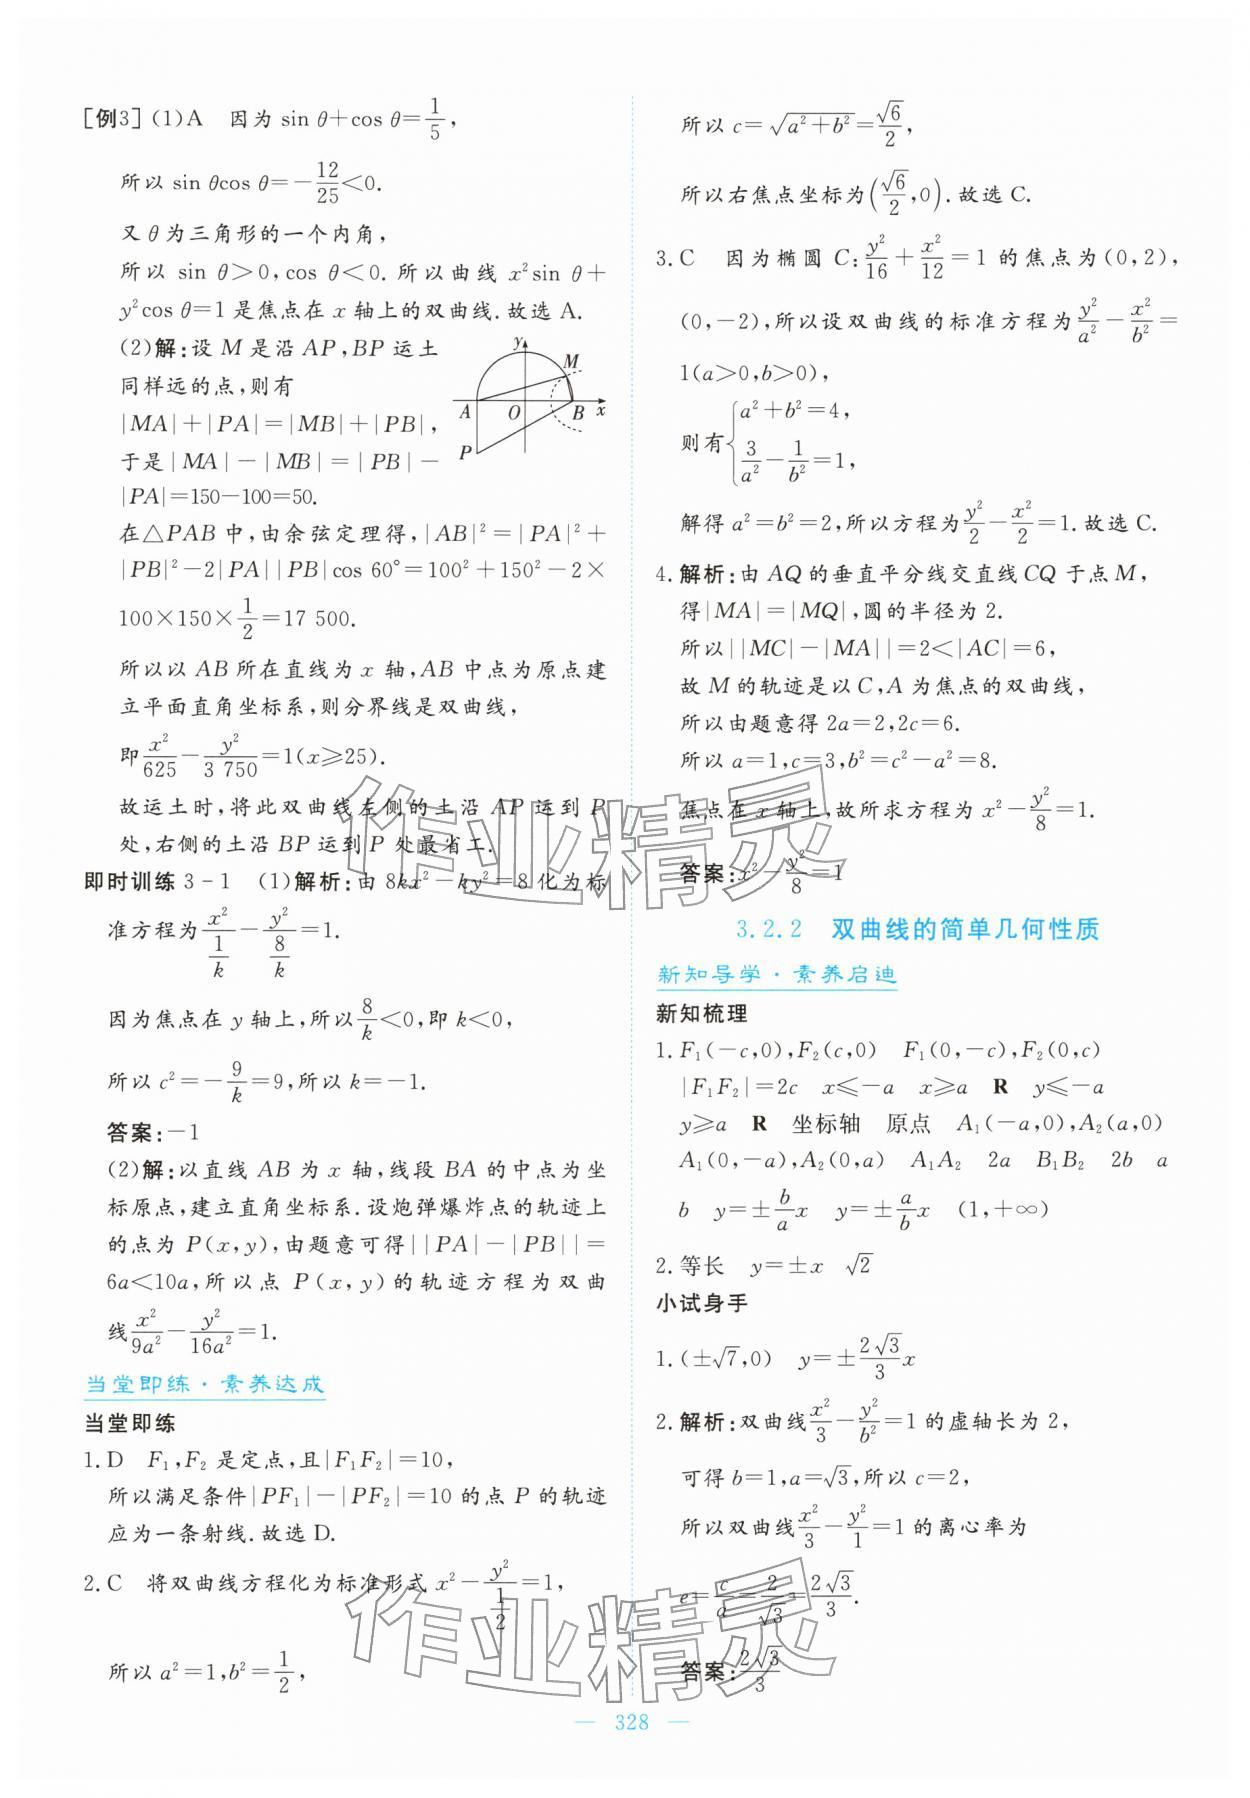 [例3] (1)A 因为 sin θ+cos θ=1/5,
所以 sin θcos θ=-12/25<0.
又 θ 为三角形的一个内角,
所以 sin θ>0,cos θ<0. 所以曲线 x²sin θ+
y²cos θ=1 是焦点在 x 轴上的双曲线.故选 A.
(2)解:设 M 是沿 AP,BP 运土
同样远的点,则有
|MA|+|PA|=|MB|+|PB|,
于是|MA|-|MB|=|PB|-
|PA|=150-100=50.
y M A O B x P
在△PAB 中,由余弦定理得,|AB|²=|PA|²+
|PB|²-2|PA||PB|cos 60°=100²+150²-2×
100×150×1/2=17 500.
所以以 AB 所在直线为 x 轴,AB 中点为原点建
立平面直角坐标系,则分界线是双曲线,
即x²/625-y²/3 750=1(x≥25).
故运土时,将此双曲线左侧的土沿 AP 运到 P
处,右侧的土沿 BP 运到 P 处最省工.
即时训练 3-1 (1)解析:由 8kx²-ky²=8 化为标
准方程为x²/(1/k)-y²/(8/k)=1.
因为焦点在 y 轴上,所以8/k<0,即 k<0,
所以 c²=-9/k=9,所以 k=-1.
答案:-1
(2)解:以直线 AB 为 x 轴,线段 BA 的中点为坐
标原点,建立直角坐标系.设炮弹爆炸点的轨迹上
的点为 P(x,y),由题意可得||PA|-|PB||=
6a<10a,所以点 P(x,y)的轨迹方程为双曲
线x²/9a²-y²/16a²=1.
当堂即练·素养达成
当堂即练
1.D F₁,F₂ 是定点,且|F₁F₂|=10,
所以满足条件|PF₁|-|PF₂|=10 的点 P 的轨迹
应为一条射线.故选 D.
2.C 将双曲线方程化为标准形式 x²-y²/(1/2)=1,
所以 a²=1,b²=1/2,
所以 c=√(a²+b²)=√6/2,
所以右焦点坐标为(√6/2,0).故选 C.
3.C 因为椭圆 C:y²/16+x²/12=1 的焦点为(0,2),
(0,-2),所以设双曲线的标准方程为y²/a²-x²/b²=
1(a>0,b>0),
则有{a²+b²=4,
3/a²-1/b²=1,
解得 a²=b²=2,所以方程为y²/2-x²/2=1.故选 C.
4.解析:由 AQ 的垂直平分线交直线 CQ 于点 M,
得|MA|=|MQ|,圆的半径为 2.
所以||MC|-|MA||=2<|AC|=6,
故 M 的轨迹是以 C,A 为焦点的双曲线,
所以由题意得 2a=2,2c=6.
所以 a=1,c=3,b²=c²-a²=8.
焦点在 x 轴上,故所求方程为 x²-y²/8=1.
答案:x²-y²/8=1
3.2.2 双曲线的简单几何性质
新知导学·素养启迪
新知梳理
1.F₁(-c,0),F₂(c,0) F₁(0,-c),F₂(0,c)
|F₁F₂|=2c x≤-a x≥a R y≤-a
y≥a R 坐标轴 原点 A₁(-a,0),A₂(a,0)
A₁(0,-a),A₂(0,a) A₁A₂ 2a B₁B₂ 2b a
b y=±b/a x y=±a/b x (1,+∞)
2.等长 y=±x √2
小试身手
1.(±√7,0) y=±2√3/3 x
2.解析:双曲线x²/3-y²/b²=1 的虚轴长为 2,
可得 b=1,a=√3,所以 c=2,
所以双曲线x²/3-y²/1=1 的离心率为
e=c/a=2/√3=2√3/3.
答案:2√3/3
— 328 —
作业精灵
作业精灵